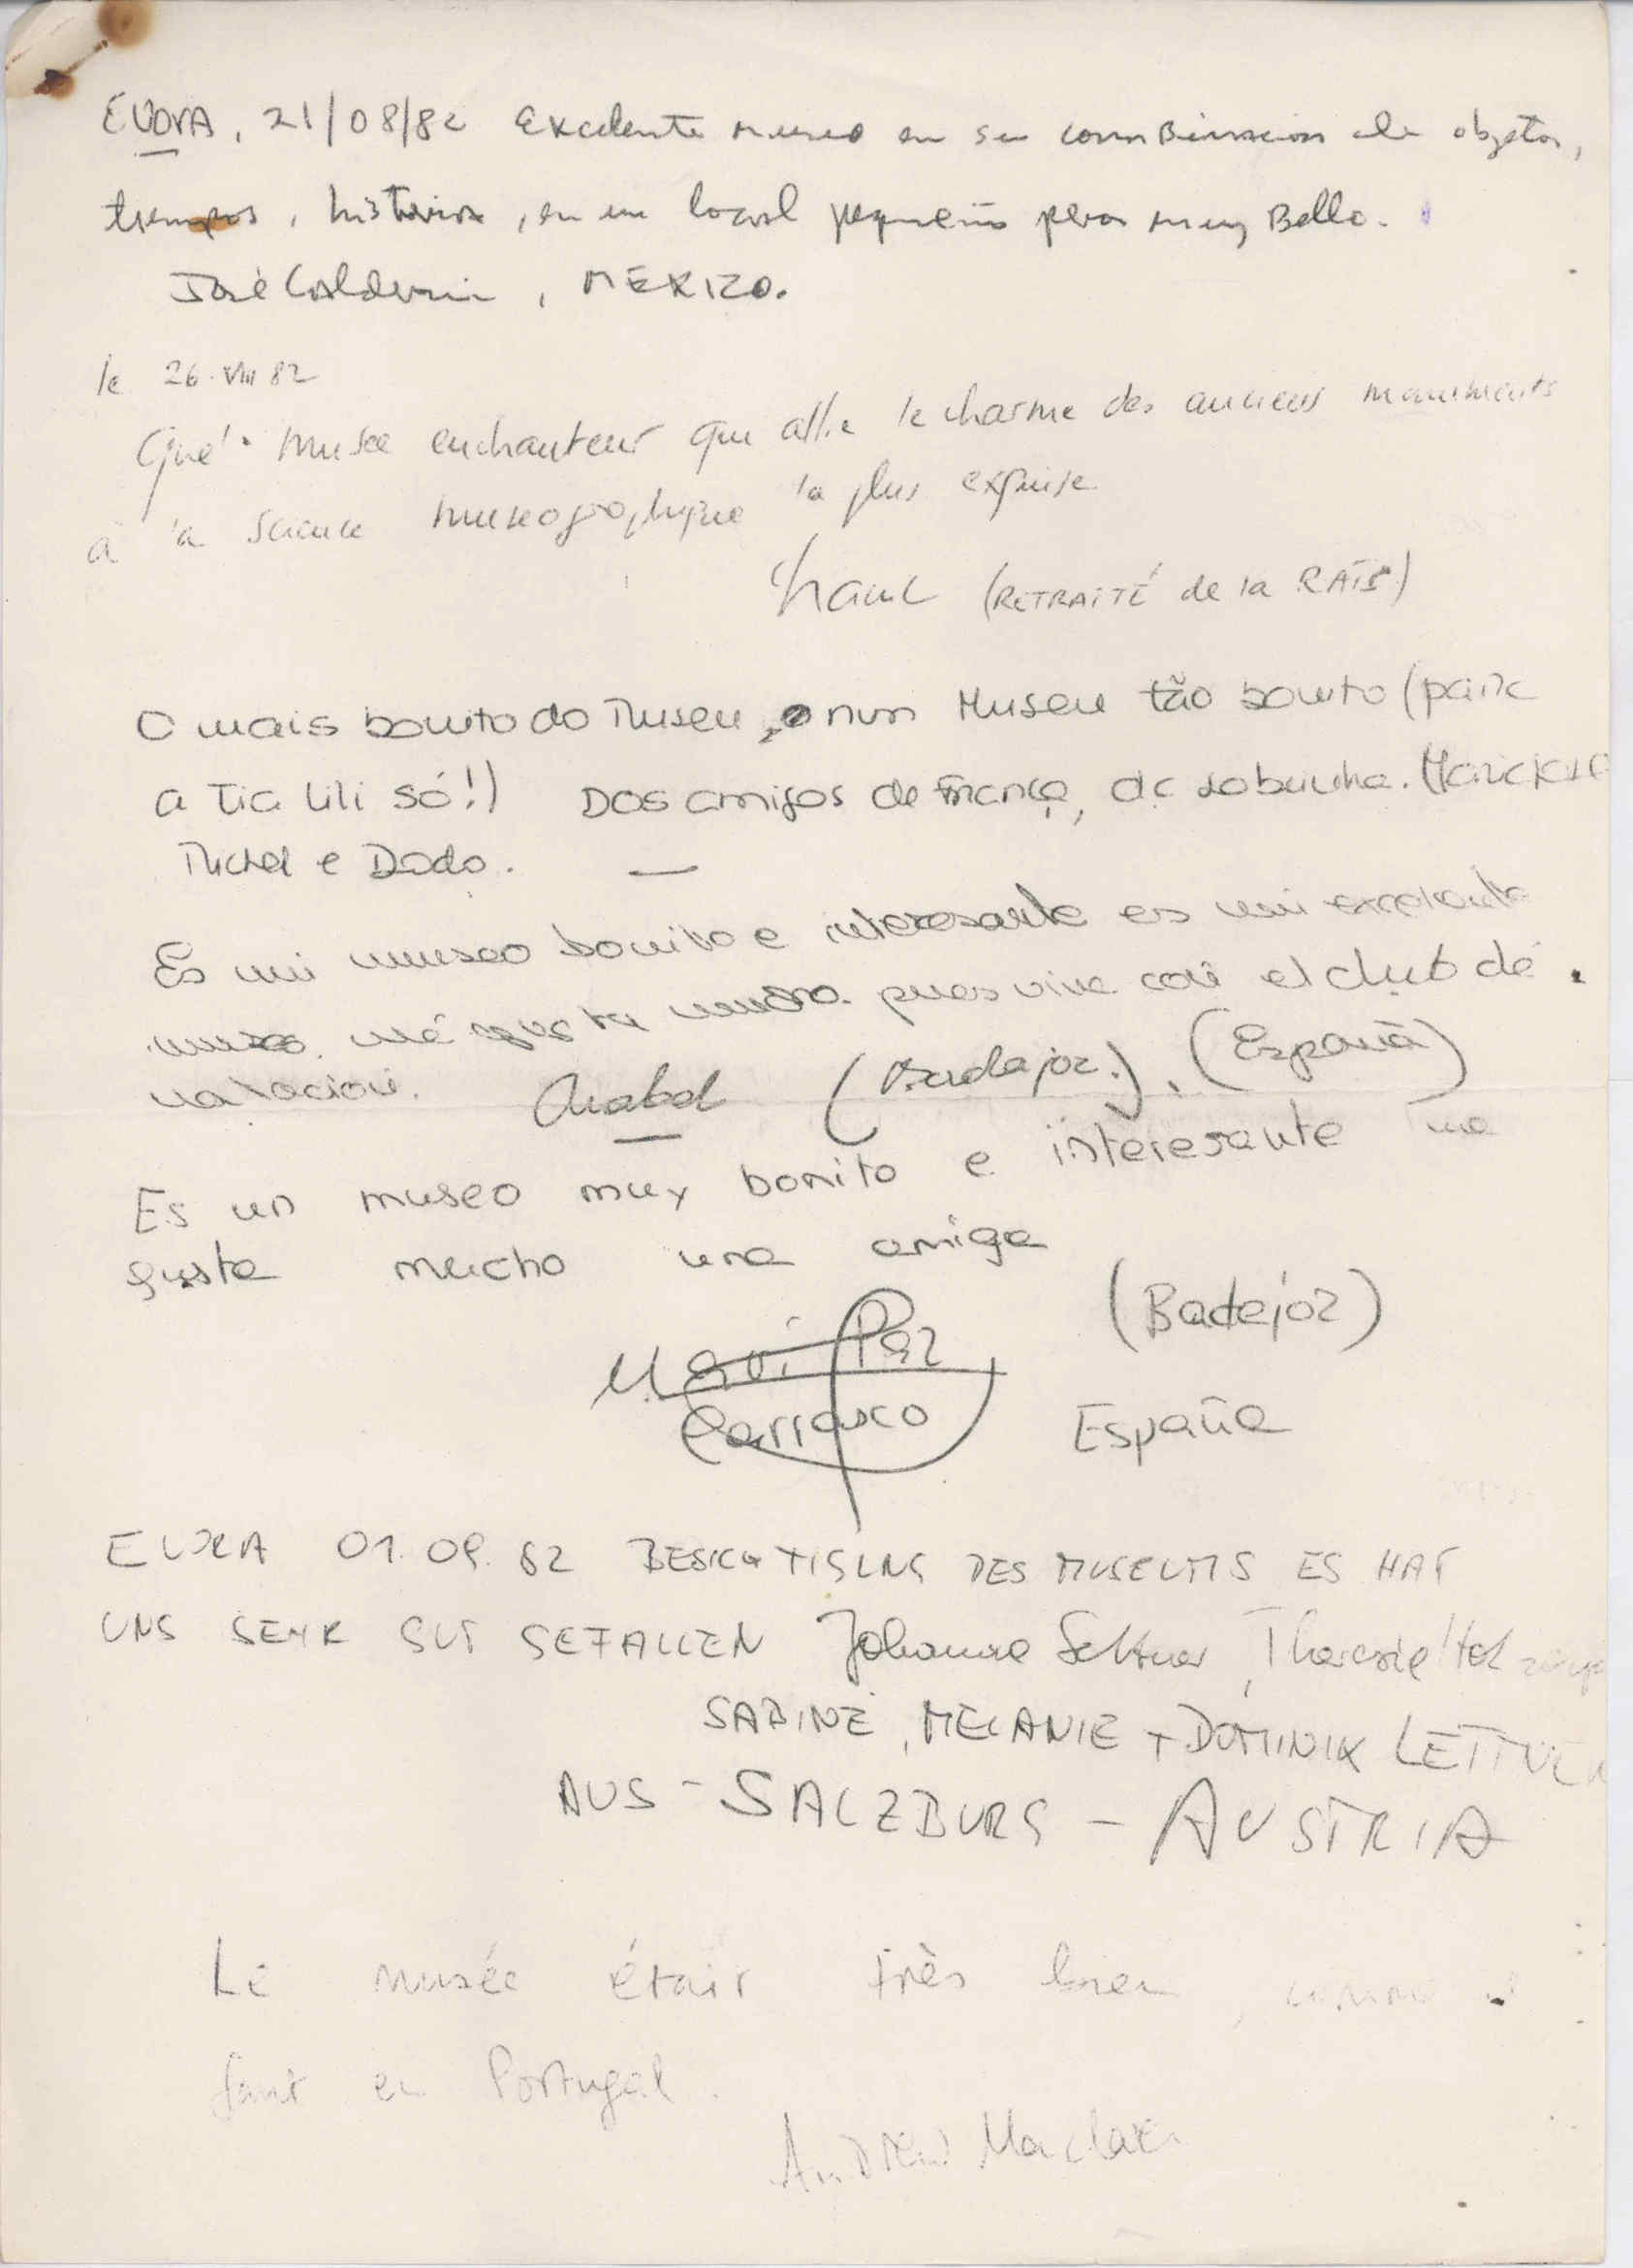 ÉVORA, 21/08/82 Excelente museo en su comBinacion de objetos,
tiempos, historia, en un local pequeño pero muy Bello.
José Calderon, MEXICO.
le 26.VIII 82
Quel musée enchanteur qui allie le charme des anciens monuments
à la science museographique la plus exquise
(RETRAITÉ de la
O mais bonito do Museu, num Museu tão bonito (para
a Tia Lili só!) Dos amigos de França, da sobrinha.
Michel e Dodo.
Es un museo bonito e interesante es un excelente
museo. me gusta mucho. pues vive con el club de
natacion. Anabel (Badajoz.), (España)
Es un museo muy bonito e interesante me
gusta mucho una amiga
(Badajoz)
Mari Paz
Carrasco España
EVORA 01.09.82 BESICHTIGUNG DES MUSEUMS ES HAT
UNS SEHR GUT GEFALLEN Johanna Theresia
SABINE, MELANIE + DOMINIK
AUS - SALZBURG - AUSTRIA
Le musée était très bien, comme il
faut en Portugal.
Andrew